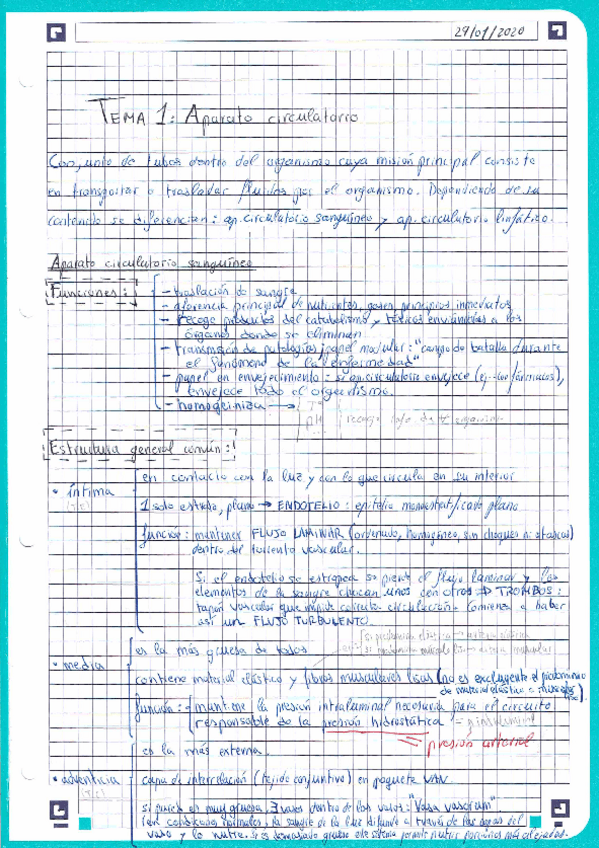 29/01/2020
TEMA 1: Aparato circulatorio
Conjunto de tubos dentro del organismo cuya misión principal consiste
en transportar o trasladar fluidos por el organismo. Dependiendo de su
contenido se diferencian: ap. circulatorio sanguíneo y ap. circulatorio linfático.
Aparato circulatorio sanguíneo
Funciones:
- traslación de sangre
- aferencia principal de nutrientes, gases, principios inmediatos
- recoge productos del catabolismo y tóxicos enviándolos a los
órganos donde se eliminan
- transmisión de patologías, papel "campo de batalla durante
el fenómeno de la enfermedad"
- papel en envejecimiento: si ap. circulatorio envejece (ej. fármacos),
envejece todo el organismo.
- homogeiniza → Tª
pH recoge info de organismo
Estructura general común:
• íntima
en contacto con la luz y con lo que circula en su interior
1 solo estrato, plano → ENDOTELIO: epitelio monoestratificado plano
función: mantener FLUJO LAMINAR (ordenado, homogéneo, sin choques ni atascos)
dentro del torrente vascular.
Si el endotelio se estropea se pierde el flujo laminar y los
elementos de la sangre chocan unos con otros → TROMBOS:
tapón vascular que impide correcta circulación. Comienza a haber
así un FLUJO TURBULENTO.
• media
es la más gruesa de todas
contiene material elástico y fibras musculares lisas (no es excluyente el predominio
de material elástico o músculo
función: mantiene la presión intraluminal necesaria para el circuito
responsable de la presión hidrostática = p. intraluminal
= presión arterial
• adventicia
(T.C)
es la más externa.
capa de interrelación (tejido conjuntivo) en paquete VAN.
si pared es muy gruesa, ∃ vasos dentro de los vasos: "Vasa vasorum"
(en condiciones normales, la sangre de la luz difunde a través de las capas del
vaso y lo nutre. Si es demasiado grueso este sistema permite nutrir porciones más alejadas.